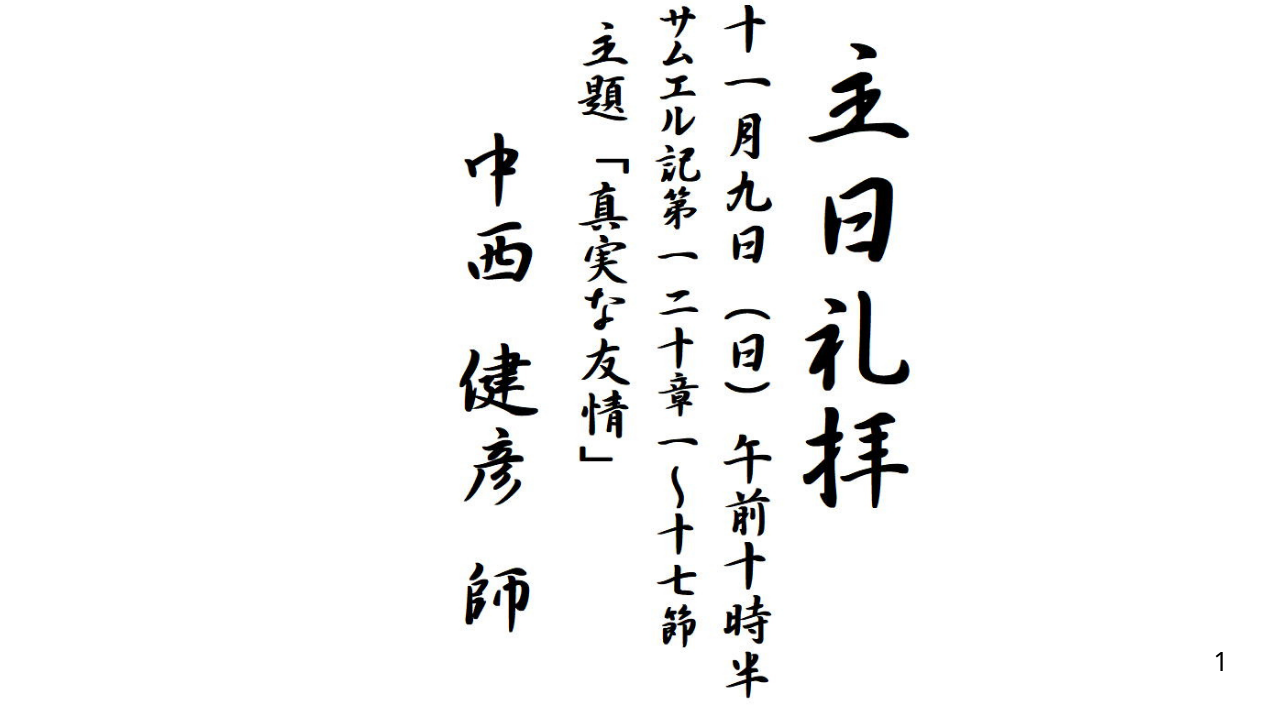 主日礼拝
十一月九日（日）午前十時半
サムエル記第一二十章一～十七節
主題「真実な友情」
中西 健彦 師
1